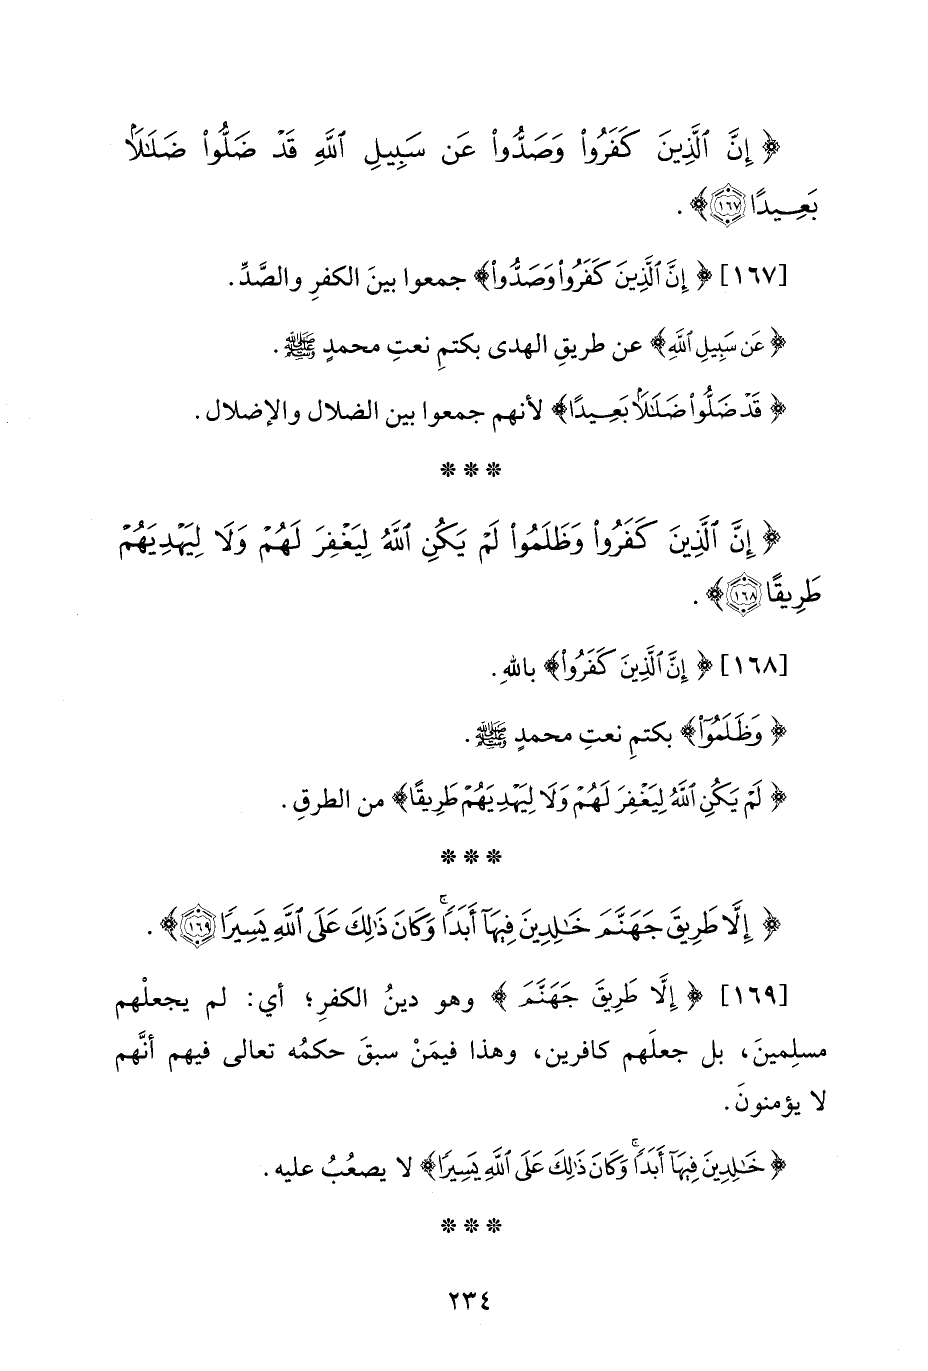 ﴿ إِنَّ ٱلَّذِينَ كَفَرُوا۟ وَصَدُّوا۟ عَن سَبِيلِ ٱللَّهِ قَدْ ضَلُّوا۟ ضَلَـٰلًۢا
بَعِيدًا ١٦٧ ﴾ .
[١٦٧] ﴿ إِنَّ ٱلَّذِينَ كَفَرُوا۟ وَصَدُّوا۟ ﴾ جمعوا بينَ الكفرِ والصَّدِّ.
﴿ عَن سَبِيلِ ٱللَّهِ ﴾ عن طريقِ الهدى بكتمِ نعتِ محمدٍ ﷺ .
﴿ قَدْ ضَلُّوا۟ ضَلَـٰلًۢا بَعِيدًا ﴾ لأنهم جمعوا بين الضلال والإضلال .
* * *
﴿ إِنَّ ٱلَّذِينَ كَفَرُوا۟ وَظَلَمُوا۟ لَمْ يَكُنِ ٱللَّهُ لِيَغْفِرَ لَهُمْ وَلَا لِيَهْدِيَهُمْ
طَرِيقًا ١٦٨ ﴾ .
[١٦٨] ﴿ إِنَّ ٱلَّذِينَ كَفَرُوا۟ ﴾ باللهِ.
﴿ وَظَلَمُوٓا۟ ﴾ بكتمِ نعتِ محمدٍ ﷺ .
﴿ لَمْ يَكُنِ ٱللَّهُ لِيَغْفِرَ لَهُمْ وَلَا لِيَهْدِيَهُمْ طَرِيقًا ﴾ من الطرقِ .
* * *
﴿ إِلَّا طَرِيقَ جَهَنَّمَ خَـٰلِدِينَ فِيهَآ أَبَدًا ۚ وَكَانَ ذَٰلِكَ عَلَى ٱللَّهِ يَسِيرًا ١٦٩ ﴾ .
[١٦٩] ﴿ إِلَّا طَرِيقَ جَهَنَّمَ ﴾ وهو دينُ الكفرِ؛ أي: لم يجعلْهم
مسلِمينَ، بل جعلَهم كافرين، وهذا فيمَنْ سبقَ حكمُه تعالى فيهم أنَّهم
لا يؤمنونَ.
﴿ خَـٰلِدِينَ فِيهَآ أَبَدًا ۚ وَكَانَ ذَٰلِكَ عَلَى ٱللَّهِ يَسِيرًا ﴾ لا يصعُبُ عليه .
* * *
٢٣٤